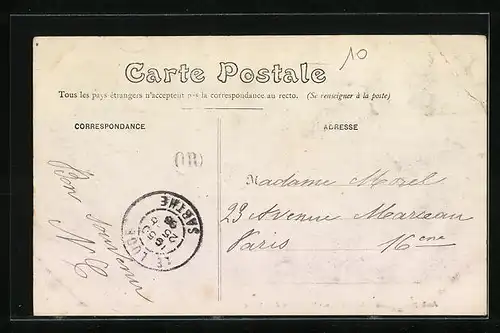 10
Carte Postale
Tous les pays étrangers n'acceptent pas la correspondance au recto. (Se renseigner à la poste)
CORRESPONDANCE
ADRESSE
OR
Bon souvenir
Madame Morel
23 Avenue Marceau
Paris 16ème
LE LUDE
SARTHE